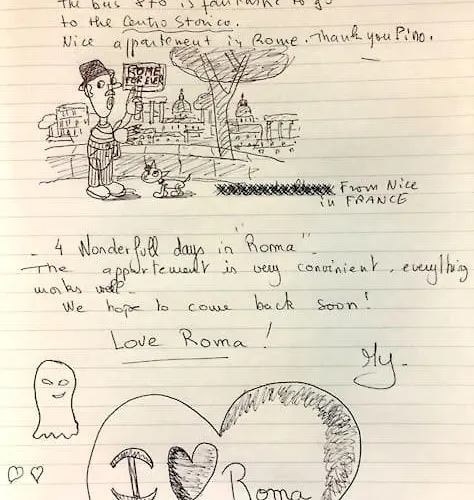 the bus 870 is fantastic to go
to the Centro Storico.
Nice appartement in Rome. Thank you Pino.
ROME
FOR EVER
From Nice
in FRANCE
4 Wonderfull days in "Roma"
The appartement is very convinient, everything
works well.
We hope to come back soon!
Love Roma!
I
Roma